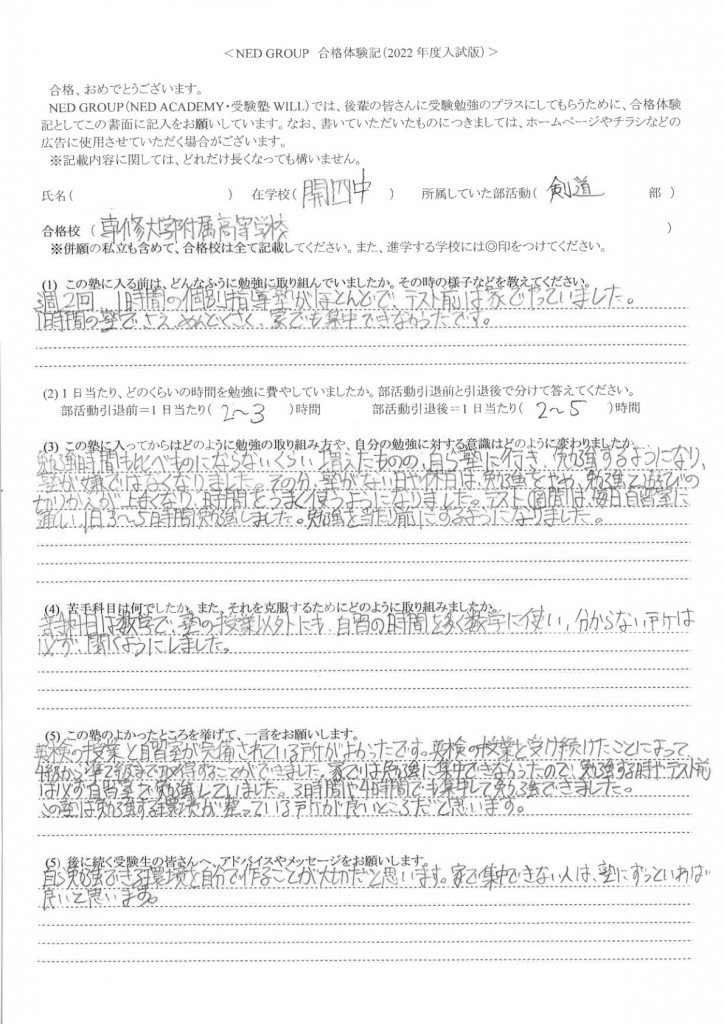 ＜NED GROUP 合格体験記（2022 年度入試版）＞
合格、おめでとうございます。
NED GROUP（NED ACADEMY・受験塾 WILL）では、後輩の皆さんに受験勉強のプラスにしてもらうために、合格体験
記としてこの書面に記入をお願いしています。なお、書いていただいたものにつきましては、ホームページやチラシなどの
広告に使用させていただく場合がございます。
※記載内容に関しては、どれだけ長くなっても構いません。
氏名（　　　）　在学校（ 開四中 ）　所属していた部活動（ 剣道 部 ）
合格校 （ 専修大学附属高等学校 ）
※併願の私立も含めて、合格校は全て記載してください。また、進学する学校には◎印をつけてください。
(1) この塾に入る前は、どんなふうに勉強に取り組んでいましたか。その時の様子などを教えてください。
週2回、1時間の個別指導塾がほとんどで、テスト前は家でやっていました。
1時間の塾でさえ、めんどくさく、家でも集中できなかったです。
(2) 1 日当たり、どのくらいの時間を勉強に費やしていましたか。部活動引退前と引退後で分けて答えてください。
部活動引退前＝1 日当たり（ 2～3 ）時間　部活動引退後＝1 日当たり（ 2～5 ）時間
(3) この塾に入ってからはどのように勉強の取り組み方や、自分の勉強に対する意識はどのように変わりましたか。
勉強時間も比べものにならないくらい増えたものの、自ら塾に行き、勉強するようになり、
塾が嫌ではなくなりました。その分、塾がない日や休日は、勉強をやめ、勉強と遊びの
切りかえが上手くなり、時間をうまく使うようになりました。テスト1週間前は毎日自習室に
通い、1日3～5時間勉強しました。勉強を当たり前にするようになりました。
(4) 苦手科目は何でしたか。また、それを克服するためにどのように取り組みましたか。
苦手科目は数学で、塾の授業以外にも、自習の時間を多く数学に使い、分からない所は
必ず聞くようにしました。
(5) この塾のよかったところを挙げて、一言をお願いします。
英検の授業と自習室が完備されている所がよかったです。英検の授業を受け続けたことによって、
4級から準2級まで取得することができました。家では勉強に集中できなかったので、勉強する時やテスト前
は必ず自習室で勉強していました。3時間や4時間でも集中して勉強できました。
この塾は勉強する環境が整っている所が良いところだと思います。
(5) 後に続く受験生の皆さんへ、アドバイスやメッセージをお願いします。
自ら勉強できる環境を自分で作ることが大切だと思います。家で集中できない人は、塾にずっといれば
良いと思います。